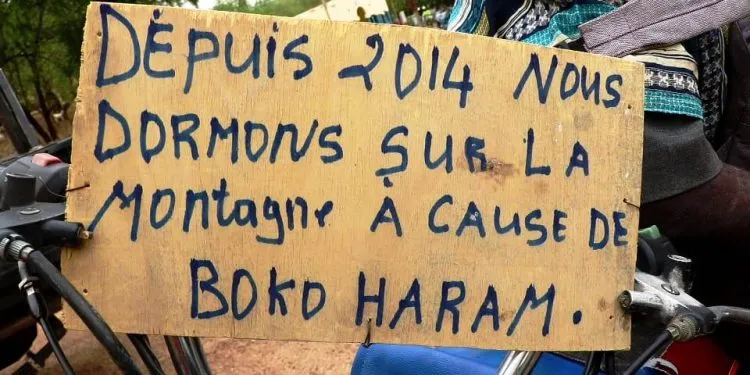 DEPUIS 2014 NOUS
DORMONS SUR LA
MONTagNe À CAUSE DE
BOKO HARAM.